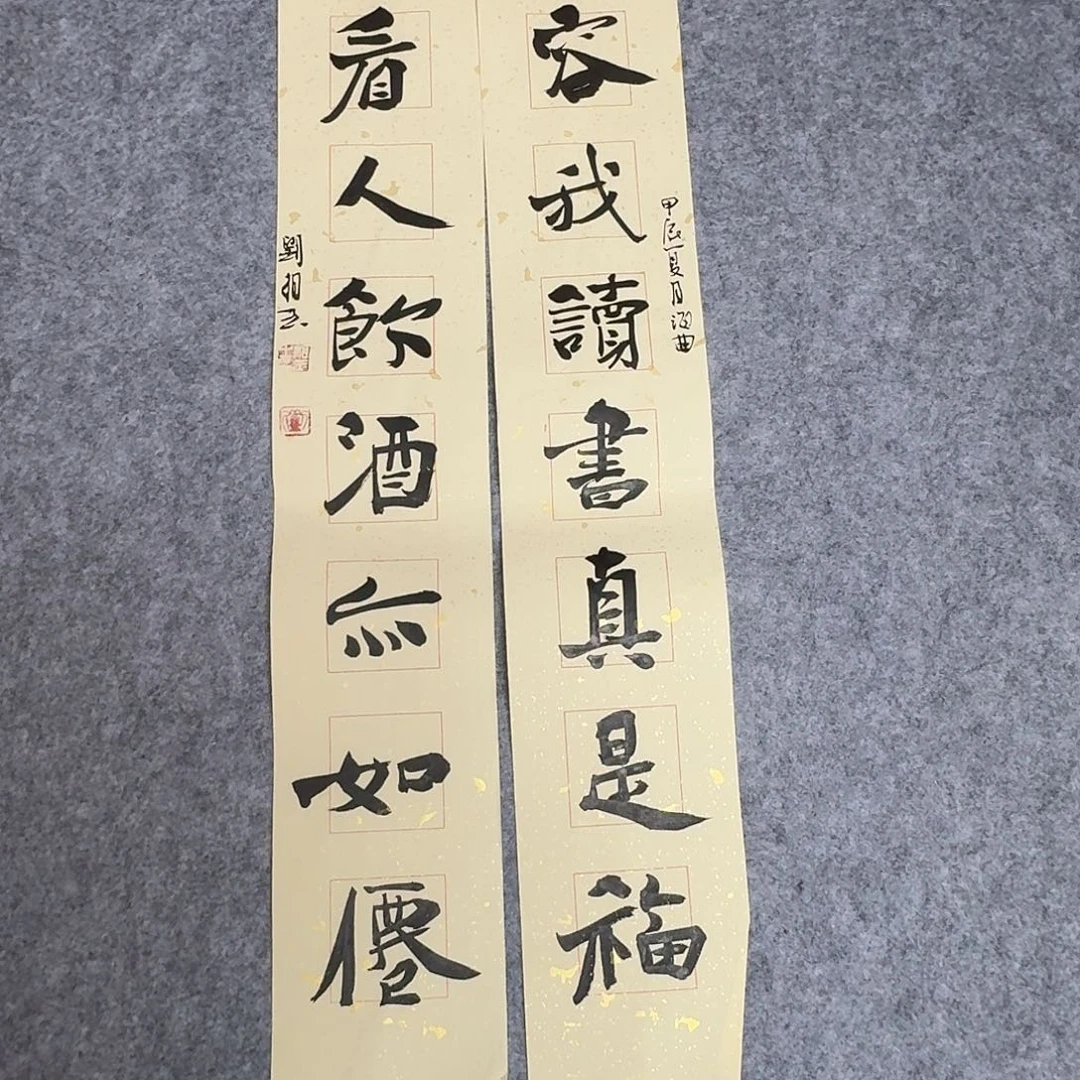 容我讀書真是福
甲辰夏月
看人飲酒亦如僊
劉